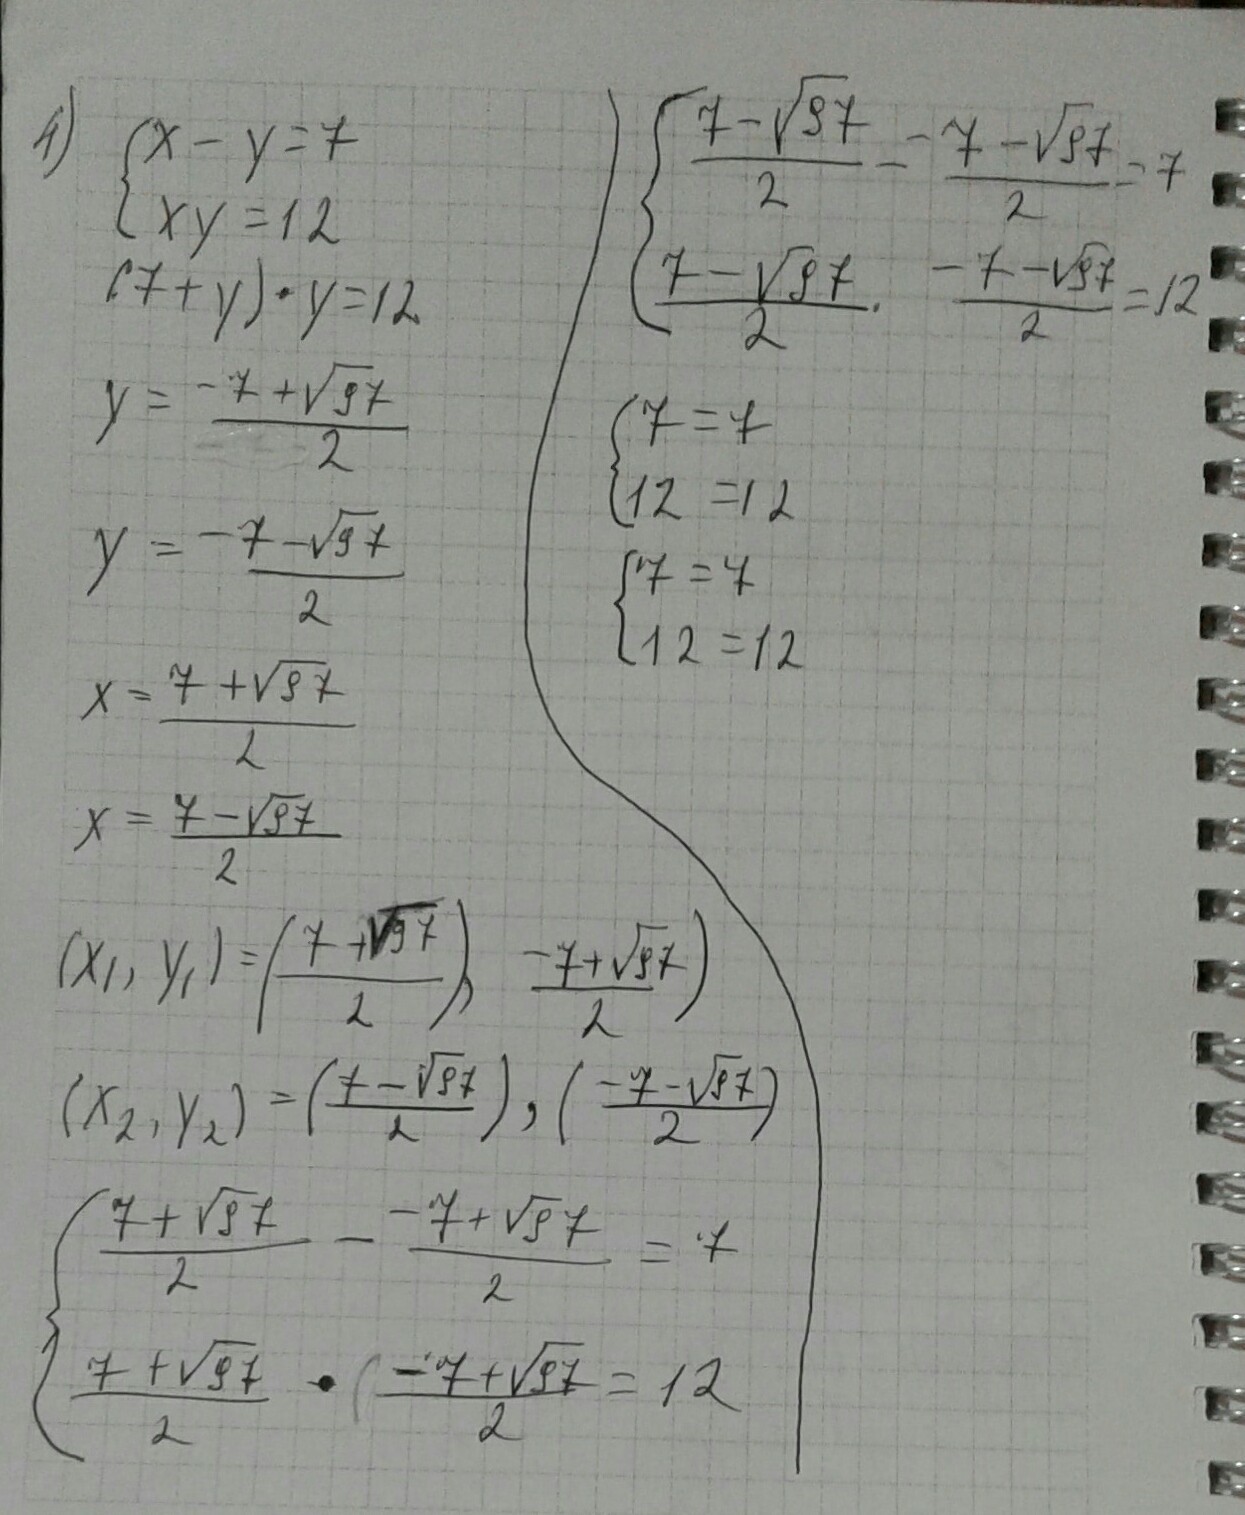 1) { x - y = 7
xy = 12
(7 + y) • y = 12
y = (-7 + √97)/2
y = (-7 - √97)/2
x = (7 + √97)/2
x = (7 - √97)/2
(x₁, y₁) = ((7 + √97)/2), (-7 + √97)/2)
(x₂, y₂) = ((7 - √97)/2), ((-7 - √97)/2)
{ (7 + √97)/2 - (-7 + √97)/2 = 7
(7 + √97)/2 • ((-7 + √97)/2 = 12
{ (7 - √97)/2 - (-7 - √97)/2 = 7
(7 - √97)/2 . (-7 - √97)/2 = 12
{ 7 = 7
12 = 12
{ 7 = 7
12 = 12